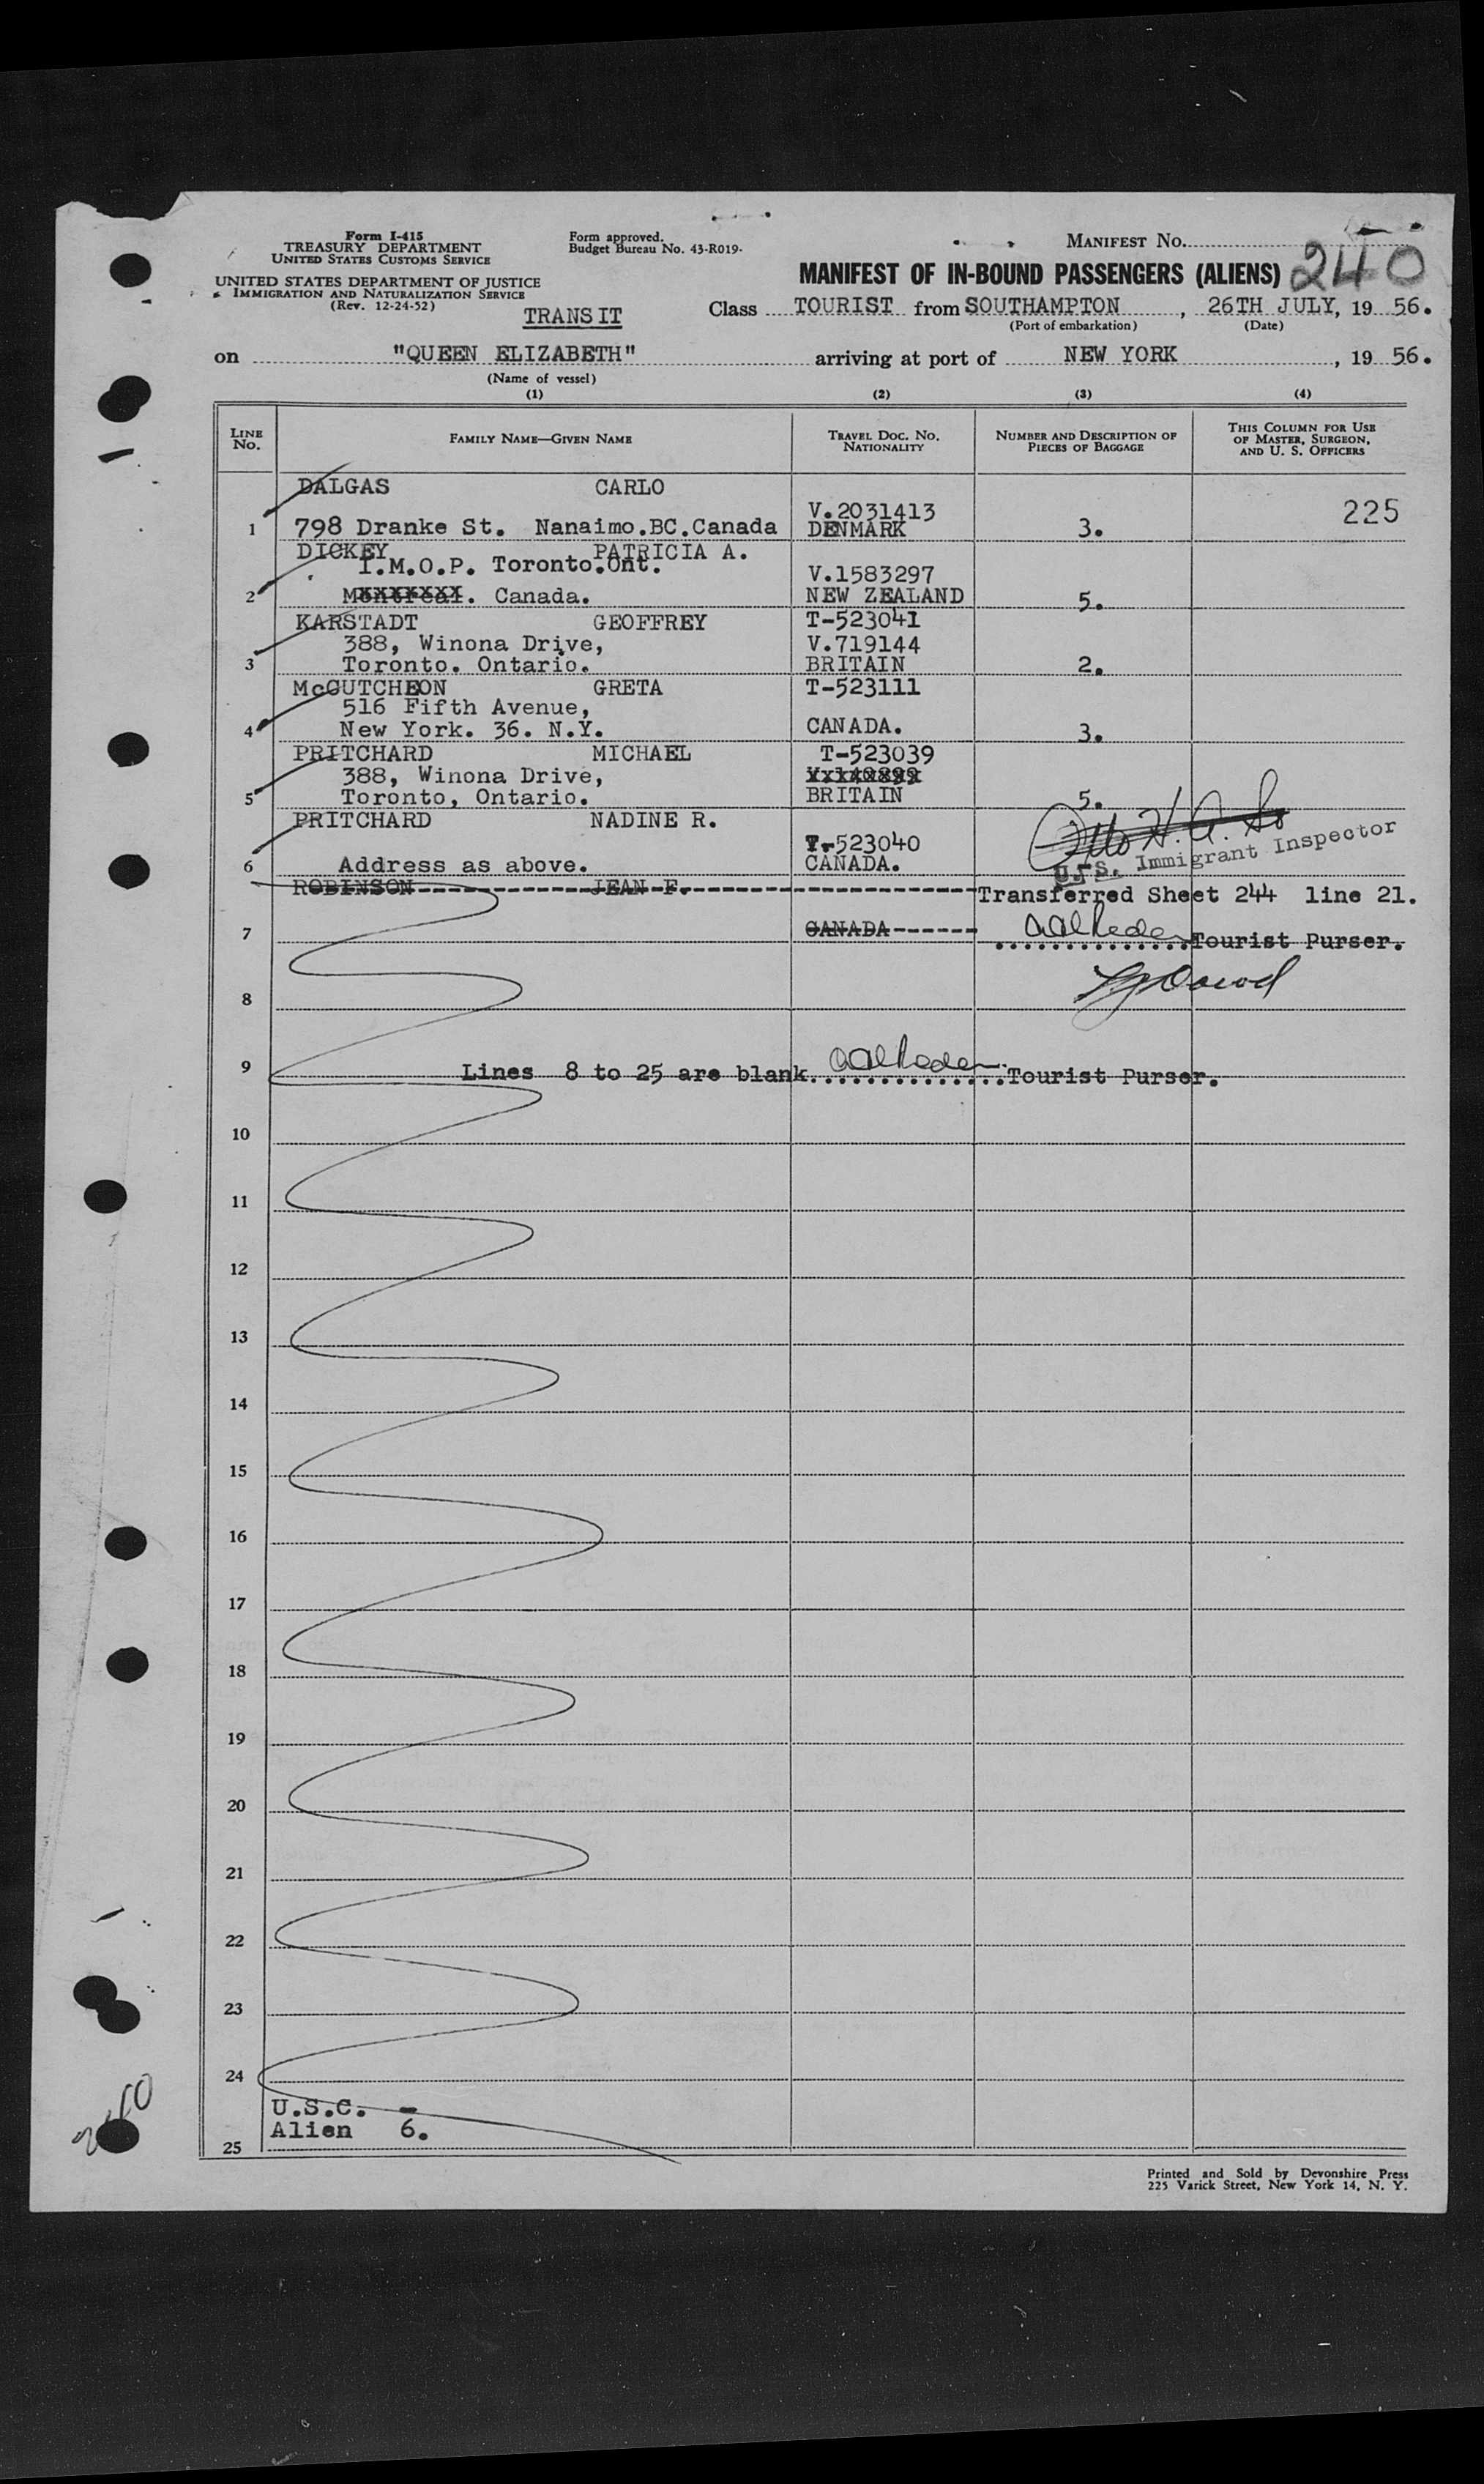 Form I-415
TREASURY DEPARTMENT
UNITED STATES CUSTOMS SERVICE
UNITED STATES DEPARTMENT OF JUSTICE
IMMIGRATION AND NATURALIZATION SERVICE
(Rev. 12-24-52)
TRANSIT
Form approved.
Budget Bureau No. 43-R019.
MANIFEST NO.
240
MANIFEST OF IN-BOUND PASSENGERS (ALIENS)
Class TOURIST from SOUTHAMPTON, 26TH JULY, 19 56.
(Port of embarkation) (Date)
on "QUEEN ELIZABETH" arriving at port of NEW YORK, 19 56.
(Name of vessel)
(1) (2) (3) (4)
LINE NO.
FAMILY NAME—GIVEN NAME
TRAVEL DOC. NO. NATIONALITY
NUMBER AND DESCRIPTION OF PIECES OF BAGGAGE
THIS COLUMN FOR USE OF MASTER, SURGEON, AND U. S. OFFICERS
DALGAS CARLO
V.2031413 225
1 798 Dranke St. Nanaimo.BC.Canada DENMARK 3.
DICKEY PATRICIA A.
I.M.O.P. Toronto.Ont.
V.1583297
2 Montreal. Canada. NEW ZEALAND 5.
KARSTADT GEOFFREY T-523041
388, Winona Drive, V.719144
3 Toronto. Ontario. BRITAIN 2.
McCUTCHEON GRETA T-523111
516 Fifth Avenue,
4 New York. 36. N.Y. CANADA. 3.
PRITCHARD MICHAEL T-523039
388, Winona Drive,
5 Toronto, Ontario. BRITAIN 5.
PRITCHARD NADINE R.
T-523040
6 Address as above. CANADA.
U.S. Immigrant Inspector
ROBINSON JEAN F. Transferred Sheet 244 line 21.
7 CANADA Tourist Purser.
8
9 Lines 8 to 25 are blank. Tourist Purser.
10
11
12
13
14
15
16
17
18
19
20
21
22
23
24
U.S.C. -
Alien 6.
25
Printed and Sold by Devonshire Press
225 Varick Street, New York 14, N. Y.